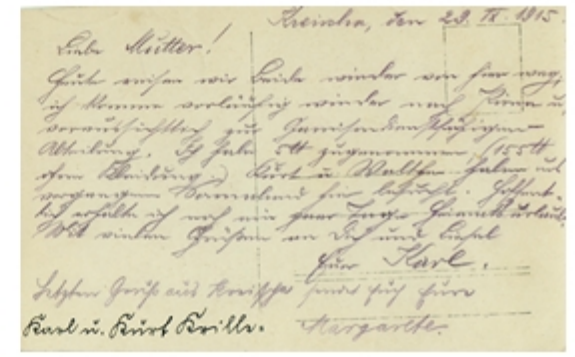 Kreischa, den 29. IX. 1915.
Liebe Mutter!
Heute reisen wir beide wieder von hier weg,
ich komme vorläufig wieder nach Pirna u.
voraussichtlich zur Garnisondienstfähigen-
Abteilung. Ich habe 5 zugenommen (155
ohne Kleidung.) Kurt u. Walther haben uns
vergangenen Sonnabend hier besucht. Hoffent-
lich erhalte ich noch ein paar Tage Heimaturlaub.
Mit vielen Grüßen an Dich und Liesel
Euer Karl.
Letzten Gruß aus Kreischa sendet Euch Eure
Margarete.
Karl u. Kurt Krille.